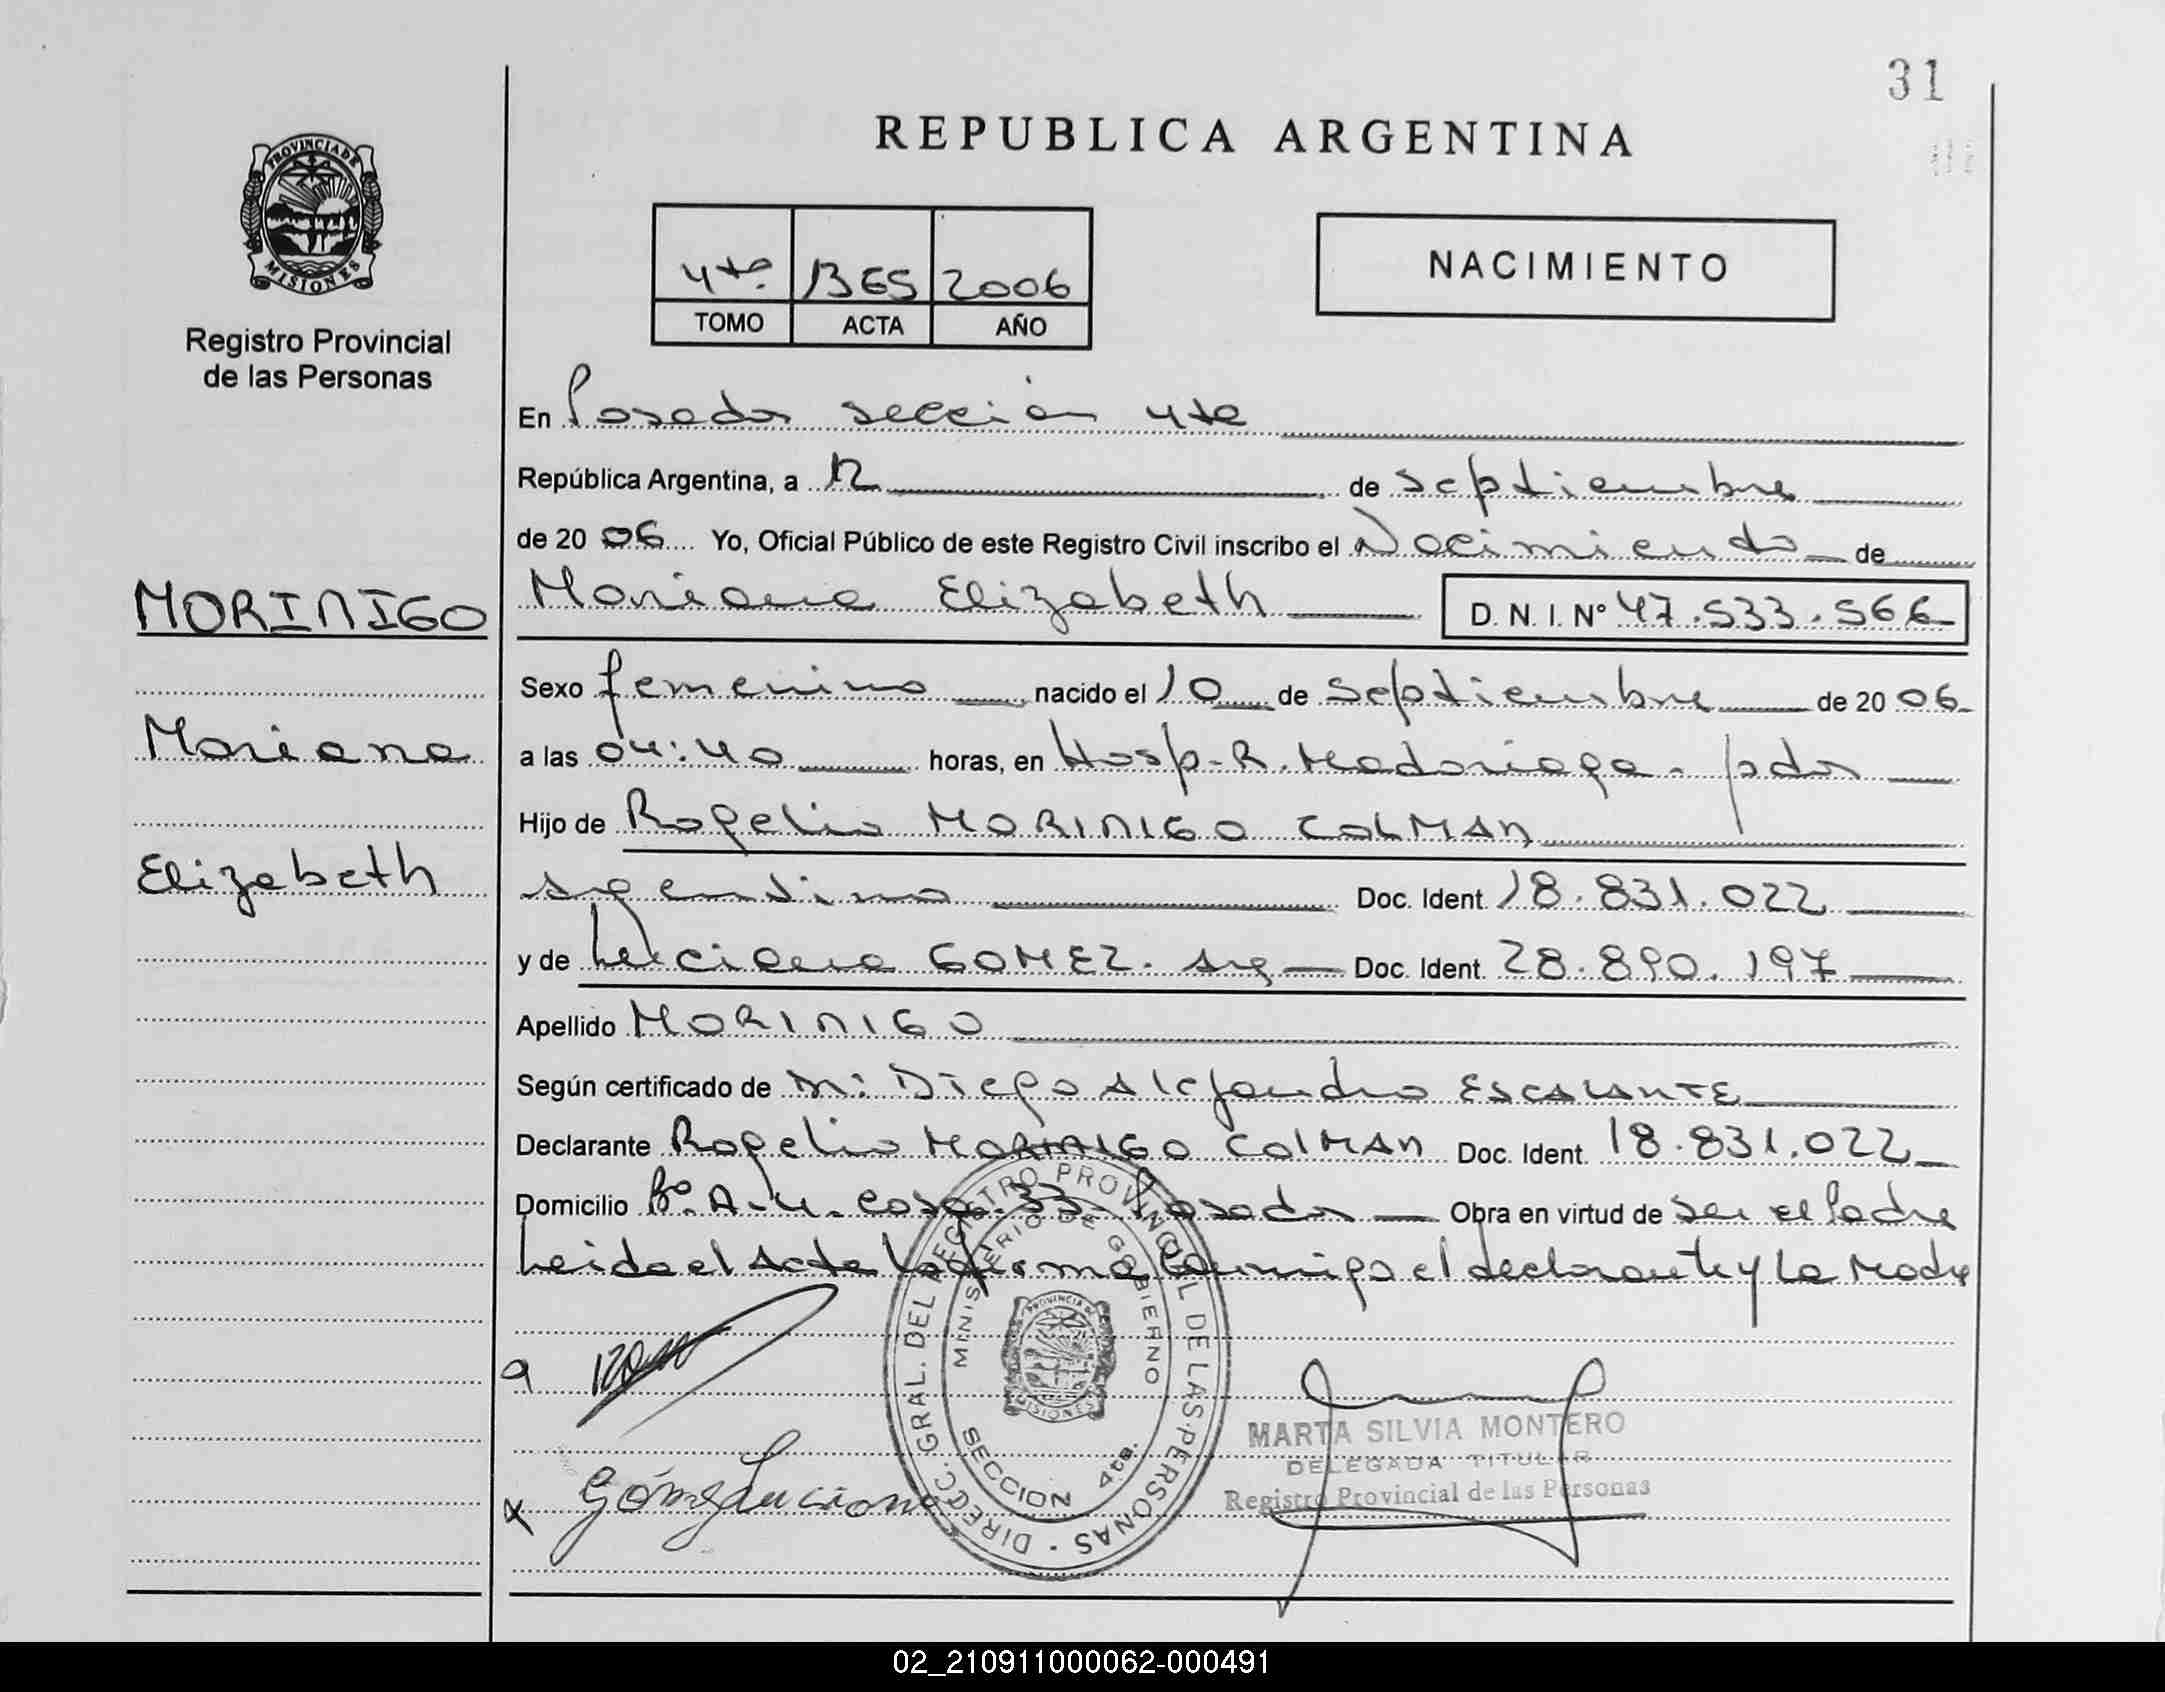 31
REPUBLICA ARGENTINA
PROVINCIA DE
MISIONES
Registro Provincial
de las Personas
4ta. 1365 2006
TOMO ACTA AÑO
NACIMIENTO
En Posadas sección 4ta
República Argentina, a 12 de septiembre
de 2006 Yo, Oficial Público de este Registro Civil inscribo el Nacimiento de
Mariana Elizabeth D. N. I. Nº 47.533.566
MORINIGO
Mariana
Elizabeth
Sexo femenino nacido el 10 de septiembre de 2006
a las 04:40 horas, en Hosp. R. Madariaga. pdas
Hijo de Rogelio MORINIGO COLMAN
argentino Doc. Ident. 18.831.022
y de Luciana GOMEZ. arg Doc. Ident. 28.890.197
Apellido MORINIGO
Según certificado de Diego Alejandro ESCALANTE
Declarante Rogelio MORINIGO COLMAN Doc. Ident. 18.831.022
Domicilio Bº. A.4. casa. 33. Posadas Obra en virtud de ser el Padre
Leida el Acta la firma conmigo el declarante y la Madre
DIRECC. GRAL. DEL REGISTRO PROVINCIAL DE LAS PERSONAS
MINISTERIO DE GOBIERNO
PROVINCIA DE
MISIONES
SECCION 4ta.
Gómez Luciana
MARTA SILVIA MONTERO
DELEGADA TITULAR
Registro Provincial de las Personas
02_210911000062-000491